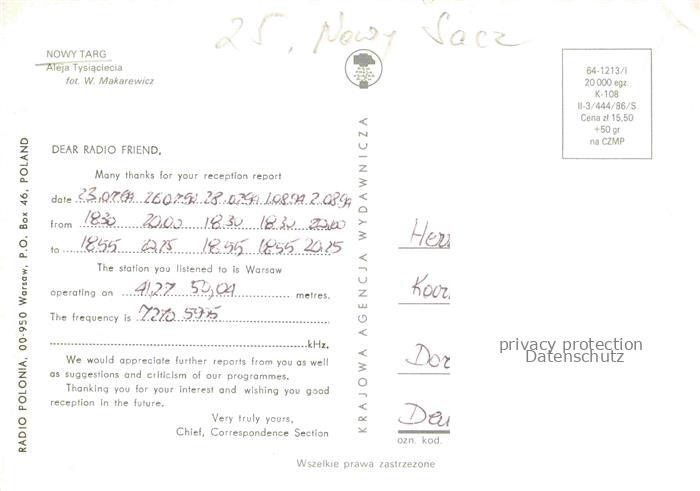 25. Nowy Sacz
NOWY TARG
Aleja Tysiąclecia
fot. W. Makarewicz
64-1213/I
20 000 egz.
K-108
II-3/444/86/S
Cena zł 15,50
+50 gr
na CZMP
RADIO POLONIA, 00-950 Warsaw, P.O. Box 46, POLAND
DEAR RADIO FRIEND,
Many thanks for your reception report
date 23.07.94 26.07.94 28.07.94 1.08.94 2.08.94
from 18.30 20.00 18.30 18.30 20.00
to 18.55 20.25 18.55 18.55 20.25
The station you listened to is Warsaw
operating on 41,27 50,04 metres.
The frequency is 7270 5995
kHz.
We would appreciate further reports from you as well
as suggestions and criticism of our programmes.
Thanking you for your interest and wishing you good
reception in the future.
Very truly yours,
Chief, Correspondence Section
KRAJOWA AGENCJA WYDAWNICZA
Herr
privacy protection
Datenschutz
ozn. kod.
Wszelkie prawa zastrzeżone